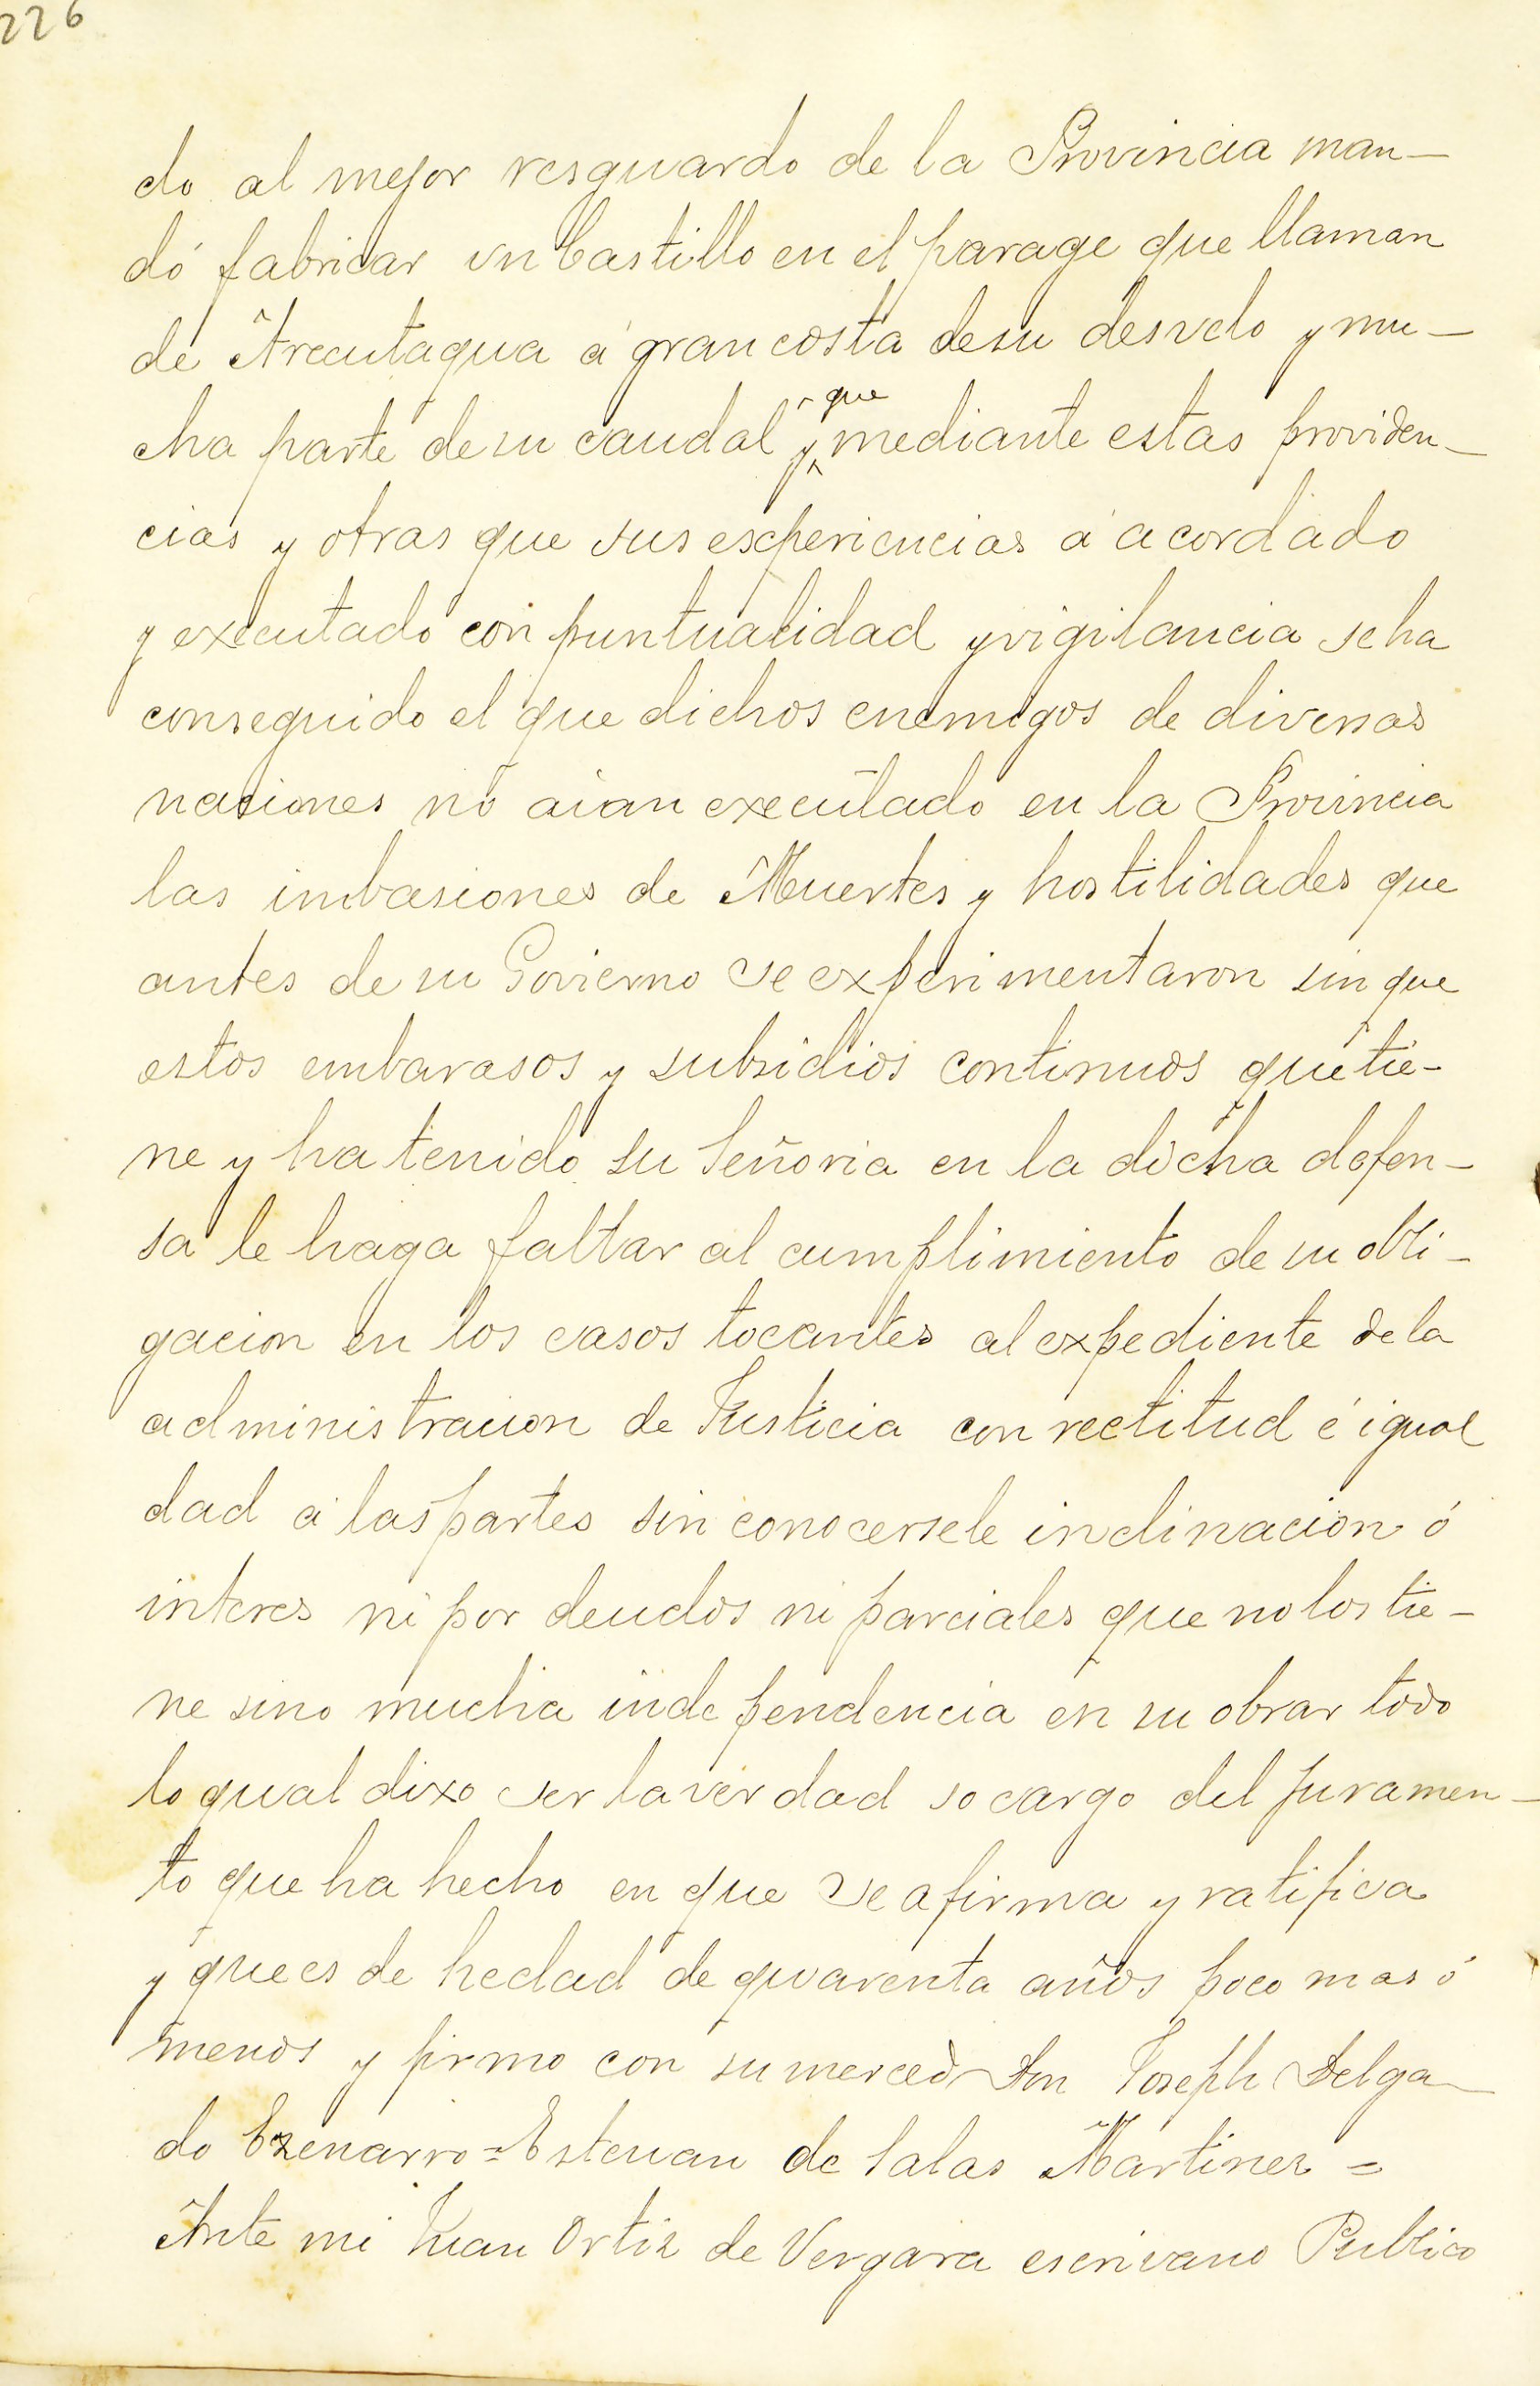 226
do al mejor resguardo de la Provincia man-
dó fabricar un Castillo en el parage que llaman
de Arecutagua á gran costa de su desvelo y mu-
cha parte de su caudal y que mediante estas providen-
cias y otras que sus esperiencias á acordado
y executado con puntualidad y vigilancia se ha
conseguido el que dichos enemigos de diversas
naciones no aian executado en la Provincia
las imbasiones de Muertes y hostilidades que
antes de su Govierno se experimentaron sin que
estos embarasos y subsidios continuos que tie-
ne y ha tenido su Señoria en la dicha defen-
sa le haga faltar al cumplimiento de su obli-
gacion en los casos tocantes al expediente de la
administracion de Justicia con rectitud é igual
dad á las partes sin conocersele inclinacion ó
interes ni por deudos ni parciales que no los tie-
ne sino mucha independencia en su obrar todo
lo qual dixo ser la verdad so cargo del juramen-
to que ha hecho en que se afirma y ratifica
y que es de hedad de quarenta años poco mas ó
menos y firmo con su merced Don Joseph Delga-
do Ezenarro = Estevan de Salas Martinez =
Ante mi Juan Ortiz de Vergara escrivano Publico